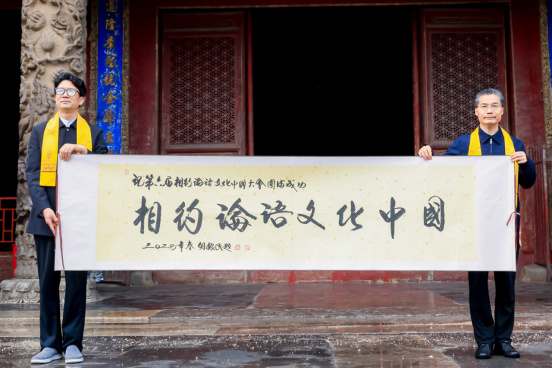 祝第六届相约论语文化中国大会圆满成功
相约論语文化中國
二〇二四年春